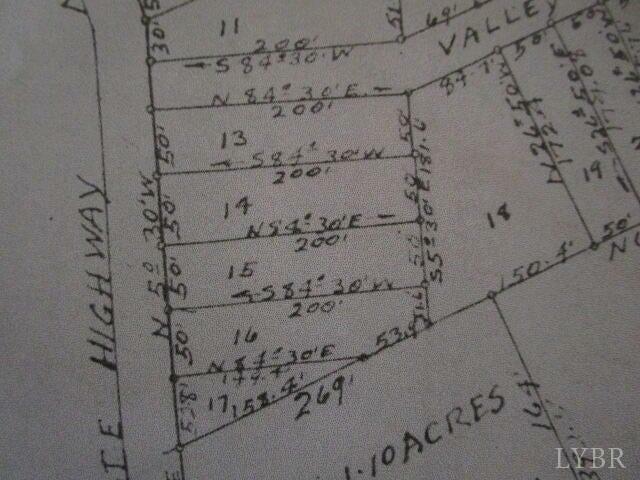 11
200'
S 84° 30' W
30'
69'
VALLEY
50'
N 84° 30' E
200'
87.1'
13
50'
50'
S 84° 30' W
200'
14
50'
50'
N 84° 30' E
200'
S 5° 30' E 181.6'
18
N 26° 50' W
172.4
19
50'
15
50'
S 84° 30' W
200'
150.4'
16
50'
N 84° 30' E
174.4'
53.9
17
158.4'
269'
52.8'
N 5° 30' W
HIGHWAY
1.10 ACRES
164'
LYBR